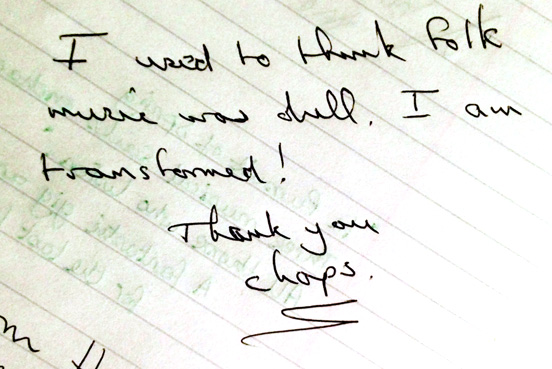 I used to think folk
music was dull. I am
transformed!
Thank you
chaps.